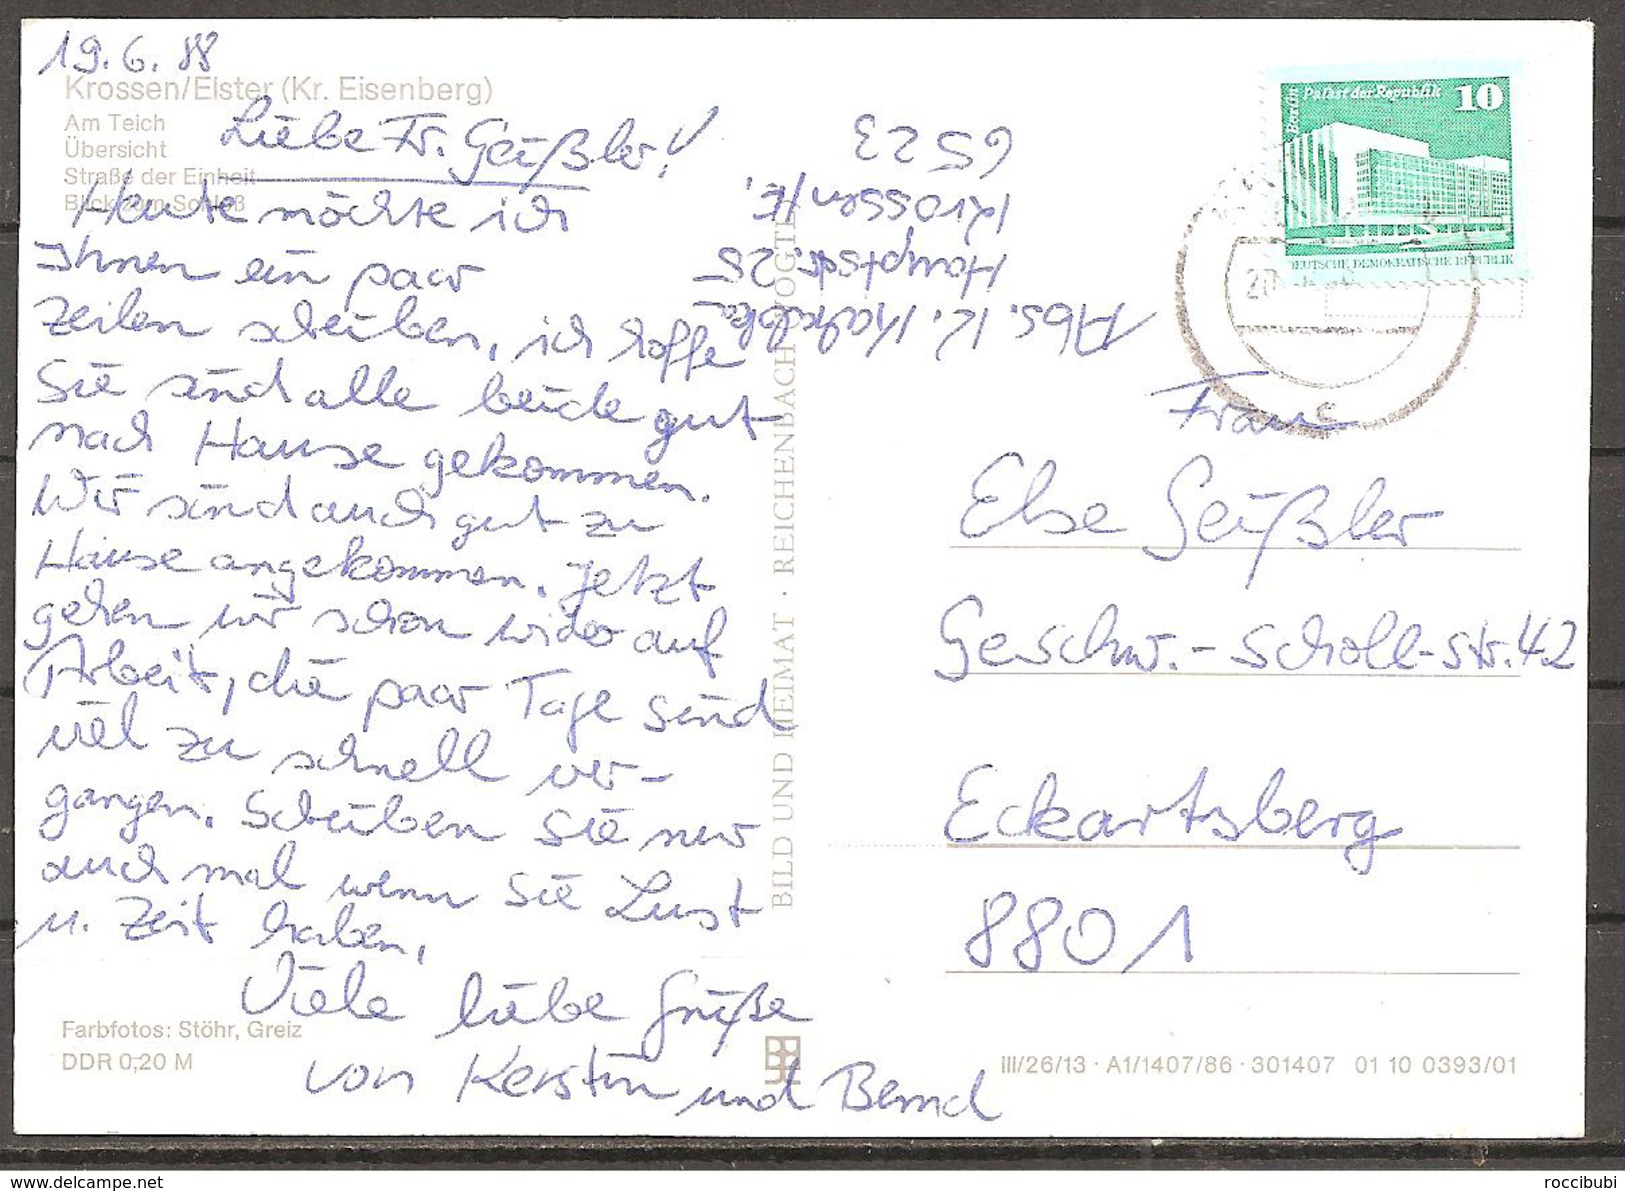 19.6.88
Krossen/Elster (Kr. Eisenberg)
Am Teich
Übersicht
Straße der Einheit
Blick zum Schloß
Liebe Fr. Geißler!
Heute möchte ich
Ihnen ein paar
Zeilen schreiben, ich hoffe
Sie sind alle beide gut
nach Hause gekommen.
Wir sind auch gut zu
Hause angekommen. Jetzt
gehen wir schon wider auf
Arbeit, die paar Tage sind
viel zu schnell ver-
gangen. Schreiben Sie nur
auch mal wenn Sie Lust
u. Zeit haben.
Viele liebe Grüße
von Kerstin und Bernd
Farbfotos: Stöhr, Greiz
DDR 0,20 M
BILD UND HEIMAT · REICHENBACH VOGTL
Abs. K.
Hauptstr. 25
Krossen/E.
6523
Berlin Palast der Republik 10
DEUTSCHE DEMOKRATISCHE REPUBLIK
Frau
Else Geißler
Geschw.-Scholl-Str. 42
Eckartsberg
8801
III/26/13 · A1/1407/86 · 301407 01 10 0393/01
www.delcampe.net
roccibubi